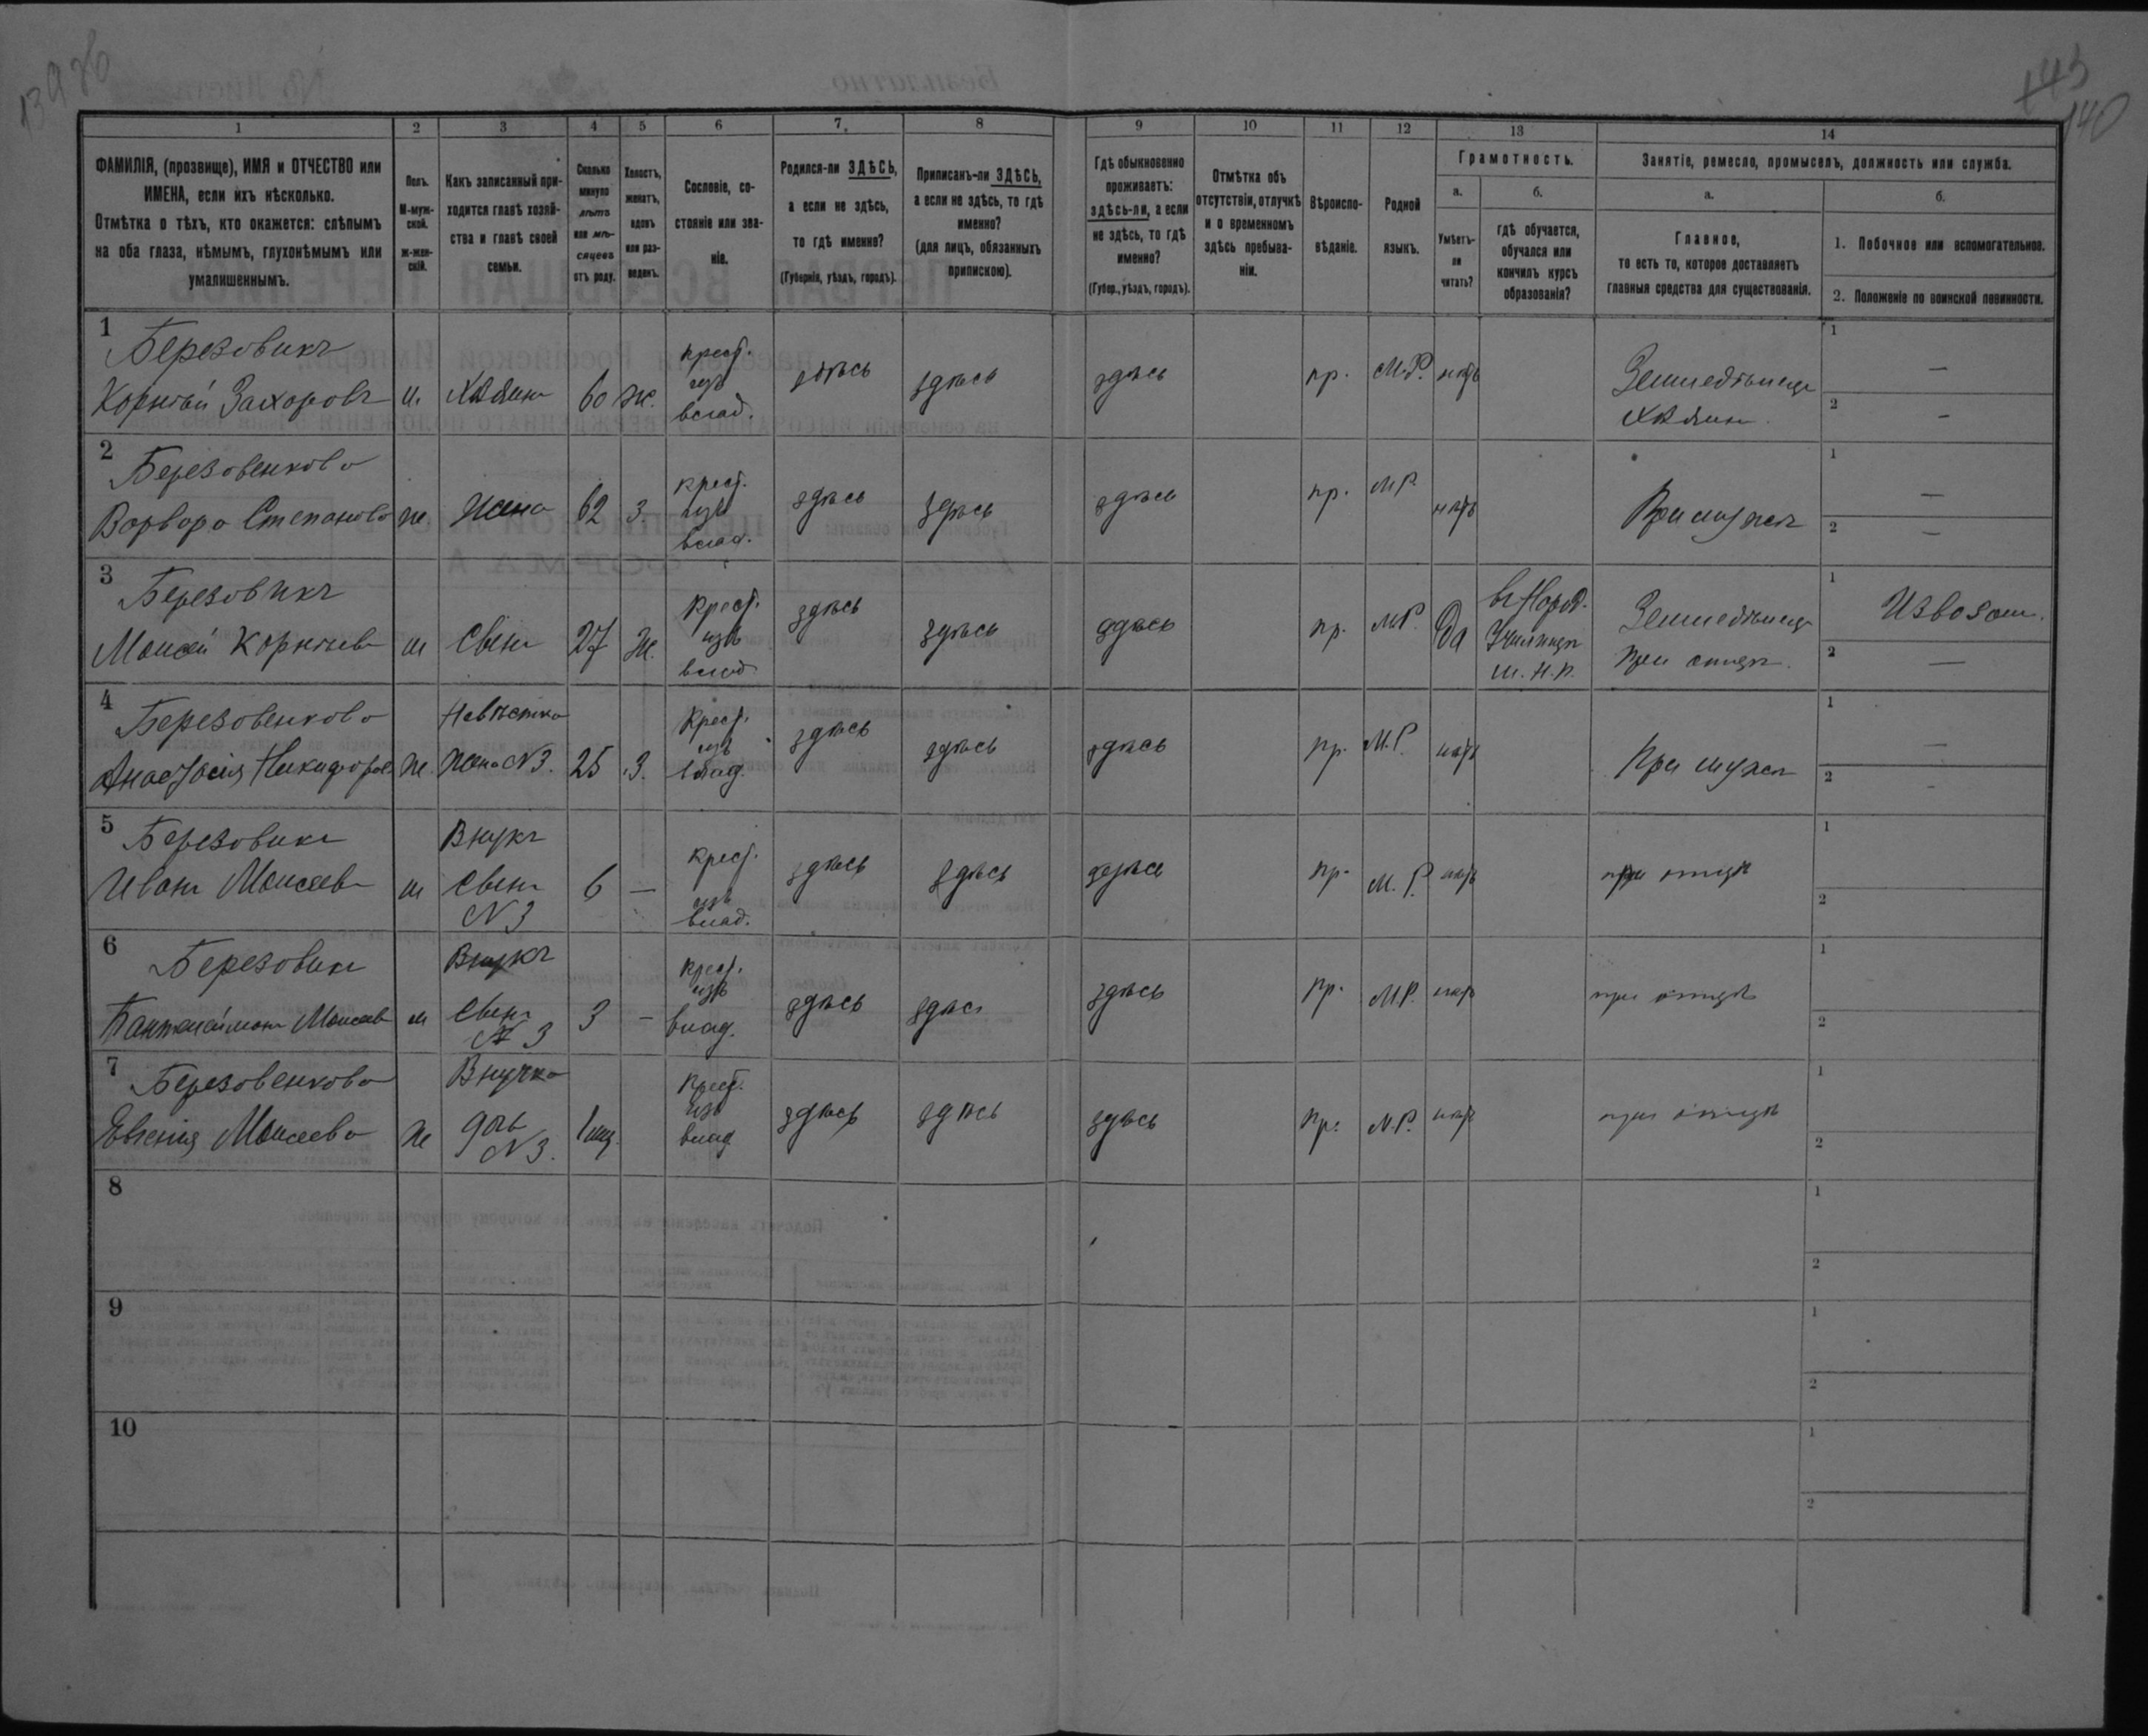 143
140
1 2 3 4 5 6 7. 8 9 10 11 12 13 14
ФАМИЛІЯ, (прозвище), ИМЯ и ОТЧЕСТВО или
ИМЕНА, если ихъ нѣсколько.
Отмѣтка о тѣхъ, кто окажется: слѣпымъ
на оба глаза, нѣмымъ, глухонѣмымъ или
умалишеннымъ.
Полъ.
М-муж-
ской.
ж-жен-
скій.
Какъ записанный при-
ходится главѣ хозяй-
ства и главѣ своей
семьи.
Сколько
минуло
лѣтъ
или мѣ-
сяцевъ
отъ роду.
Холостъ,
женатъ,
вдовъ
или раз-
веденъ.
Сословіе, со-
стояніе или зва-
ніе.
Родился-ли ЗДѢСЬ,
а если не здѣсь,
то гдѣ именно?
(Губернія, уѣздъ, городъ).
Приписанъ-ли ЗДѢСЬ,
а если не здѣсь, то гдѣ
именно?
(для лицъ, обязанныхъ
припискою).
Гдѣ обыкновенно
проживаетъ:
здѣсь-ли, а если
не здѣсь, то гдѣ
именно?
(Губер., уѣздъ, городъ).
Отмѣтка объ
отсутствіи, отлучкѣ
и о временномъ
здѣсь пребыва-
ніи.
Вѣроиспо-
вѣданіе.
Родной
языкъ.
Грамотность.
а.
Умѣетъ-
ли
читать?
б.
гдѣ обучается,
обучался или
кончилъ курсъ
образованія?
Занятіе, ремесло, промыселъ, должность или служба.
а.
Главное,
то есть то, которое доставляетъ
главныя средства для существованія.
б.
1. Побочное или вспомогательное.
2. Положеніе по воинской повинности.
1
Березовикъ
Корнѣй Захоровъ м. Хозяинъ 60 ж. крест. изъ влад. здѣсь здѣсь здѣсь пр. М.Р. нѣтъ Земледѣлецъ
Хозяинъ
1 —
2 —
2
Березовенкова
Ворвора Степанова ж Жена 62 з. крест. изъ влад. здѣсь здѣсь здѣсь пр. М.Р. нѣтъ При мужѣ
1 —
2 —
3
Березовикъ
Моисей Корнѣевъ м Сынъ 27 ж. Крест. изъ влад здѣсь здѣсь здѣсь пр. М.Р. Да въ Народ.
Училищѣ
М.Н.П.
Земледѣлецъ
при отцѣ.
1 Извозом.
2 —
4
Березовенкова Невѣстка
Анастасія Никифоров. ж. Жена N 3. 25 з. Крест. изъ влад. здѣсь здѣсь здѣсь пр. М.Р. нѣтъ При мужѣ
1 —
2 -
5
Березовикъ Внукъ
Иванъ Моисеевъ м Сынъ N 3 6 — Крест. изъ влад. здѣсь здѣсь здѣсь пр. М.Р. нѣтъ при отцѣ
1
2
6
Березовикъ Внукъ
Пантелеймонъ Моисеевъ м Сынъ N 3 3 — Крест. изъ влад. здѣсь здѣсь здѣсь пр. М.Р. нѣтъ при отцѣ
1
2
7
Березовенкова Внучка
Евгенія Моисеева ж дочь N 3. 1 мѣц. Крест. изъ влад здѣсь здѣсь здѣсь пр. М.Р. нѣтъ при отцѣ
1
2
8
1
2
9
1
2
10
1
2